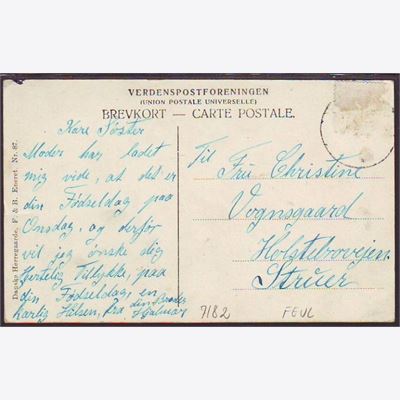 VERDENSPOSTFORENINGEN
(UNION POSTALE UNIVERSELLE)
BREVKORT — CARTE POSTALE.
Danske Herregaarde, F. & B. Eneret. Nr. 87.
Kære Søster
Moder har ladet
mig vide, at det er
din Fødselsdag paa
Onsdag, og derfor
vil jeg ønske dig
hjertelig Tillykke, paa
din Fødselsdag, en
kærlig Hilsen, fra din Broder
Hjalmar
Til
Fru Christine
Vognsgaard
Holstebrovejen
Struer
7182 FEUL